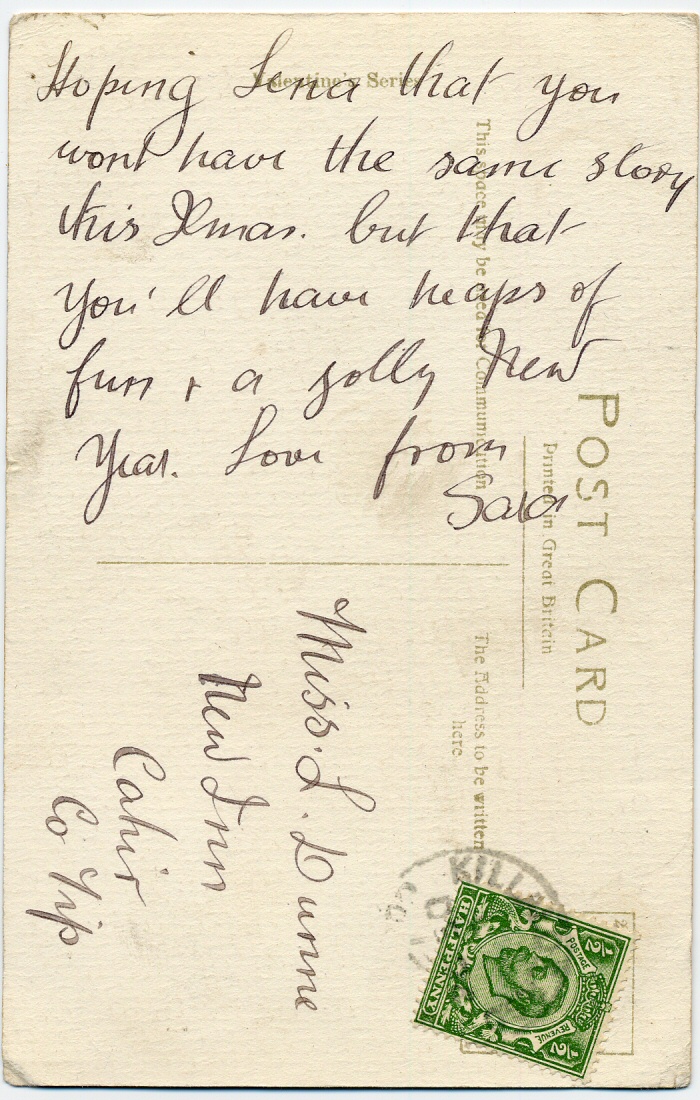 Valentine's Series
Hoping Lena that you
wont have the same story
this Xmas. but that
you'll have heaps of
fun + a jolly New
Year. Love from
Sara
POST CARD
Printed in Great Britain
This space may be used for Communication
The Address to be written
here
Miss. L. Dunne
New Inn
Cahir
Co Tip
KILL
POSTAGE
REVENUE
HALFPENNY
1/2
1/2